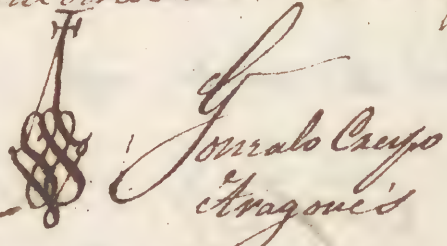 Gonzalo Crespo
Aragonés